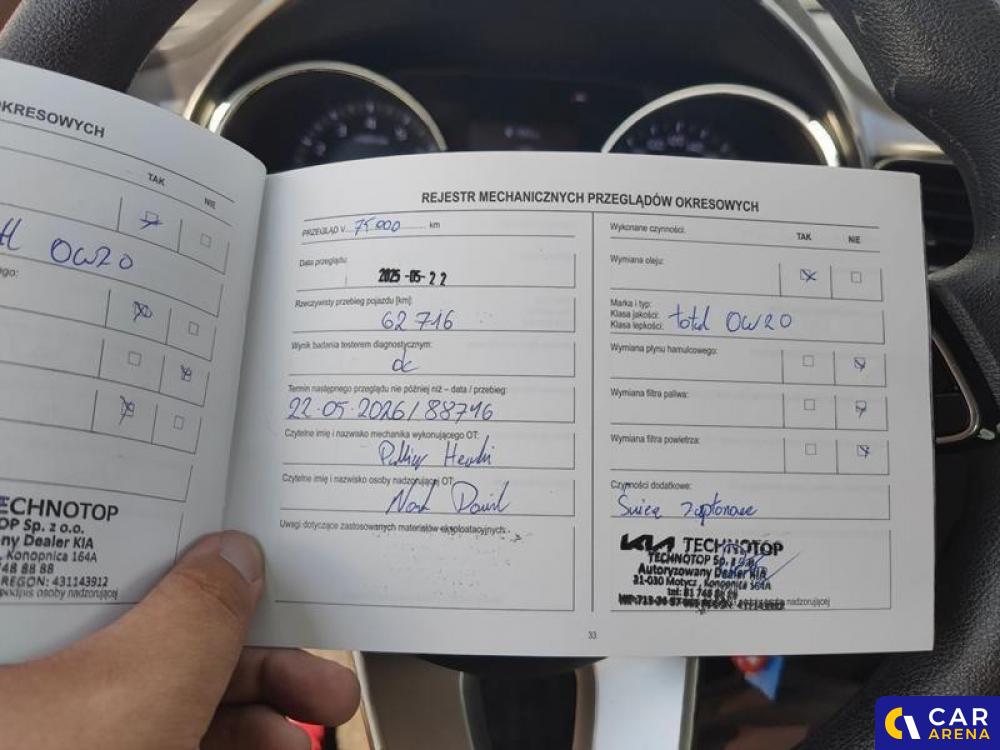 OKRESOWYCH
TAK NIE
0W20
ECHNOTOP
OP Sp. z o.o.
ny Dealer KIA
, Konopnica 164A
748 88 88
REGON: 431143912
podpis osoby nadzorującej
REJESTR MECHANICZNYCH PRZEGLĄDÓW OKRESOWYCH
PRZEGLĄD V 75000 km
Data przeglądu:
2025-05-22
Rzeczywisty przebieg pojazdu [km]:
62 716
Wynik badania testerem diagnostycznym:
Termin następnego przeglądu nie później niż – data / przebieg:
22.05.2026/88716
Czytelne imię i nazwisko mechanika wykonującego OT:
Czytelne imię i nazwisko osoby nadzorującej OT:
Uwagi dotyczące zastosowanych materiałów eksploatacyjnych:
Wykonane czynności: TAK NIE
Wymiana oleju:
Marka i typ:
Klasa jakości: total 0W20
Klasa lepkości:
Wymiana płynu hamulcowego:
Wymiana filtra paliwa:
Wymiana filtra powietrza:
Czynności dodatkowe:
Świece zapłonowe
KIA TECHNOTOP
TECHNOTOP Sp. z o.o.
Autoryzowany Dealer KIA
21-030 Motycz, Konopnica 164A
tel: 81 748 88 88
nadzorującej
33
CAR
ARENA